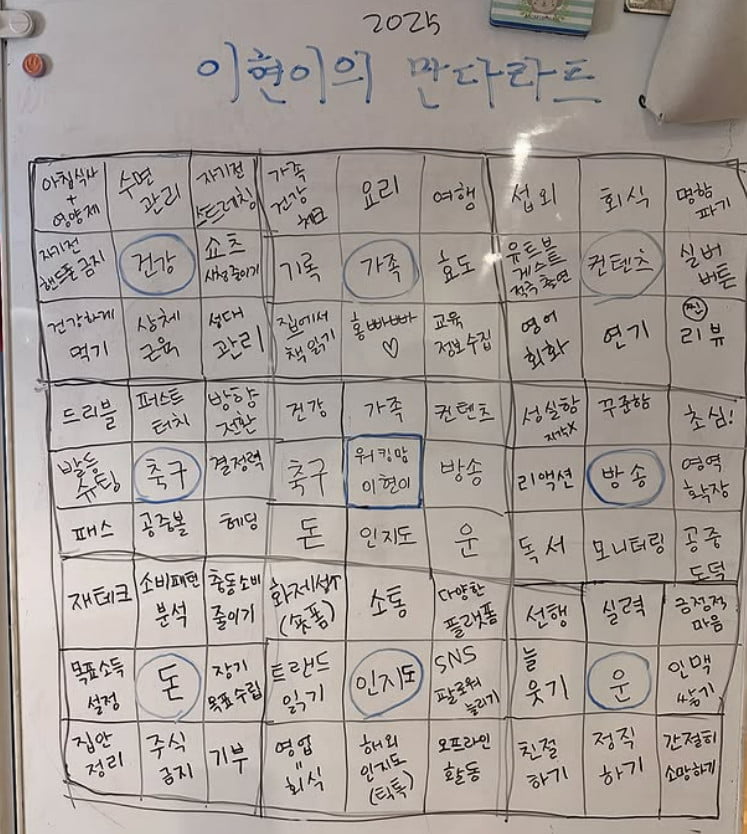 2025
이현이의 만다라트
아침식사 + 영양제 수면 관리 자기전 스트레칭 가족 건강 체크 요리 여행 섭외 회식 명함 파기
자기전 핸드폰 금지 건강 쇼츠 시청 줄이기 기록 가족 효도 유튜브 게스트 적극 출연 컨텐츠 실버 버튼
건강하게 먹기 상체 근육 성대 관리 집에서 책 읽기 홍빠빠빠 ♡ 교육 정보 수집 영어 회화 연기 찐 리뷰
드리블 퍼스트 터치 방향 전환 건강 가족 컨텐츠 성실함 지각X 꾸준함 초심!
발등 슈팅 축구 결정력 축구 워킹맘 이현이 방송 리액션 방송 영역 확장
패스 공중볼 헤딩 돈 인지도 운 독서 모니터링 공중 도덕
재테크 소비패턴 분석 충동소비 줄이기 화제성↑ (숏폼) 소통 다양한 플랫폼 선행 실력 긍정적 마음
목표소득 설정 돈 장기 목표 수립 트랜드 읽기 인지도 SNS 팔로워 늘리기 늘 웃기 운 인맥 쌓기
집안 정리 주식 금지 기부 영업 = 회식 해외 인지도 (틱톡) 오프라인 활동 친절 하기 정직 하기 간절히 소망하기